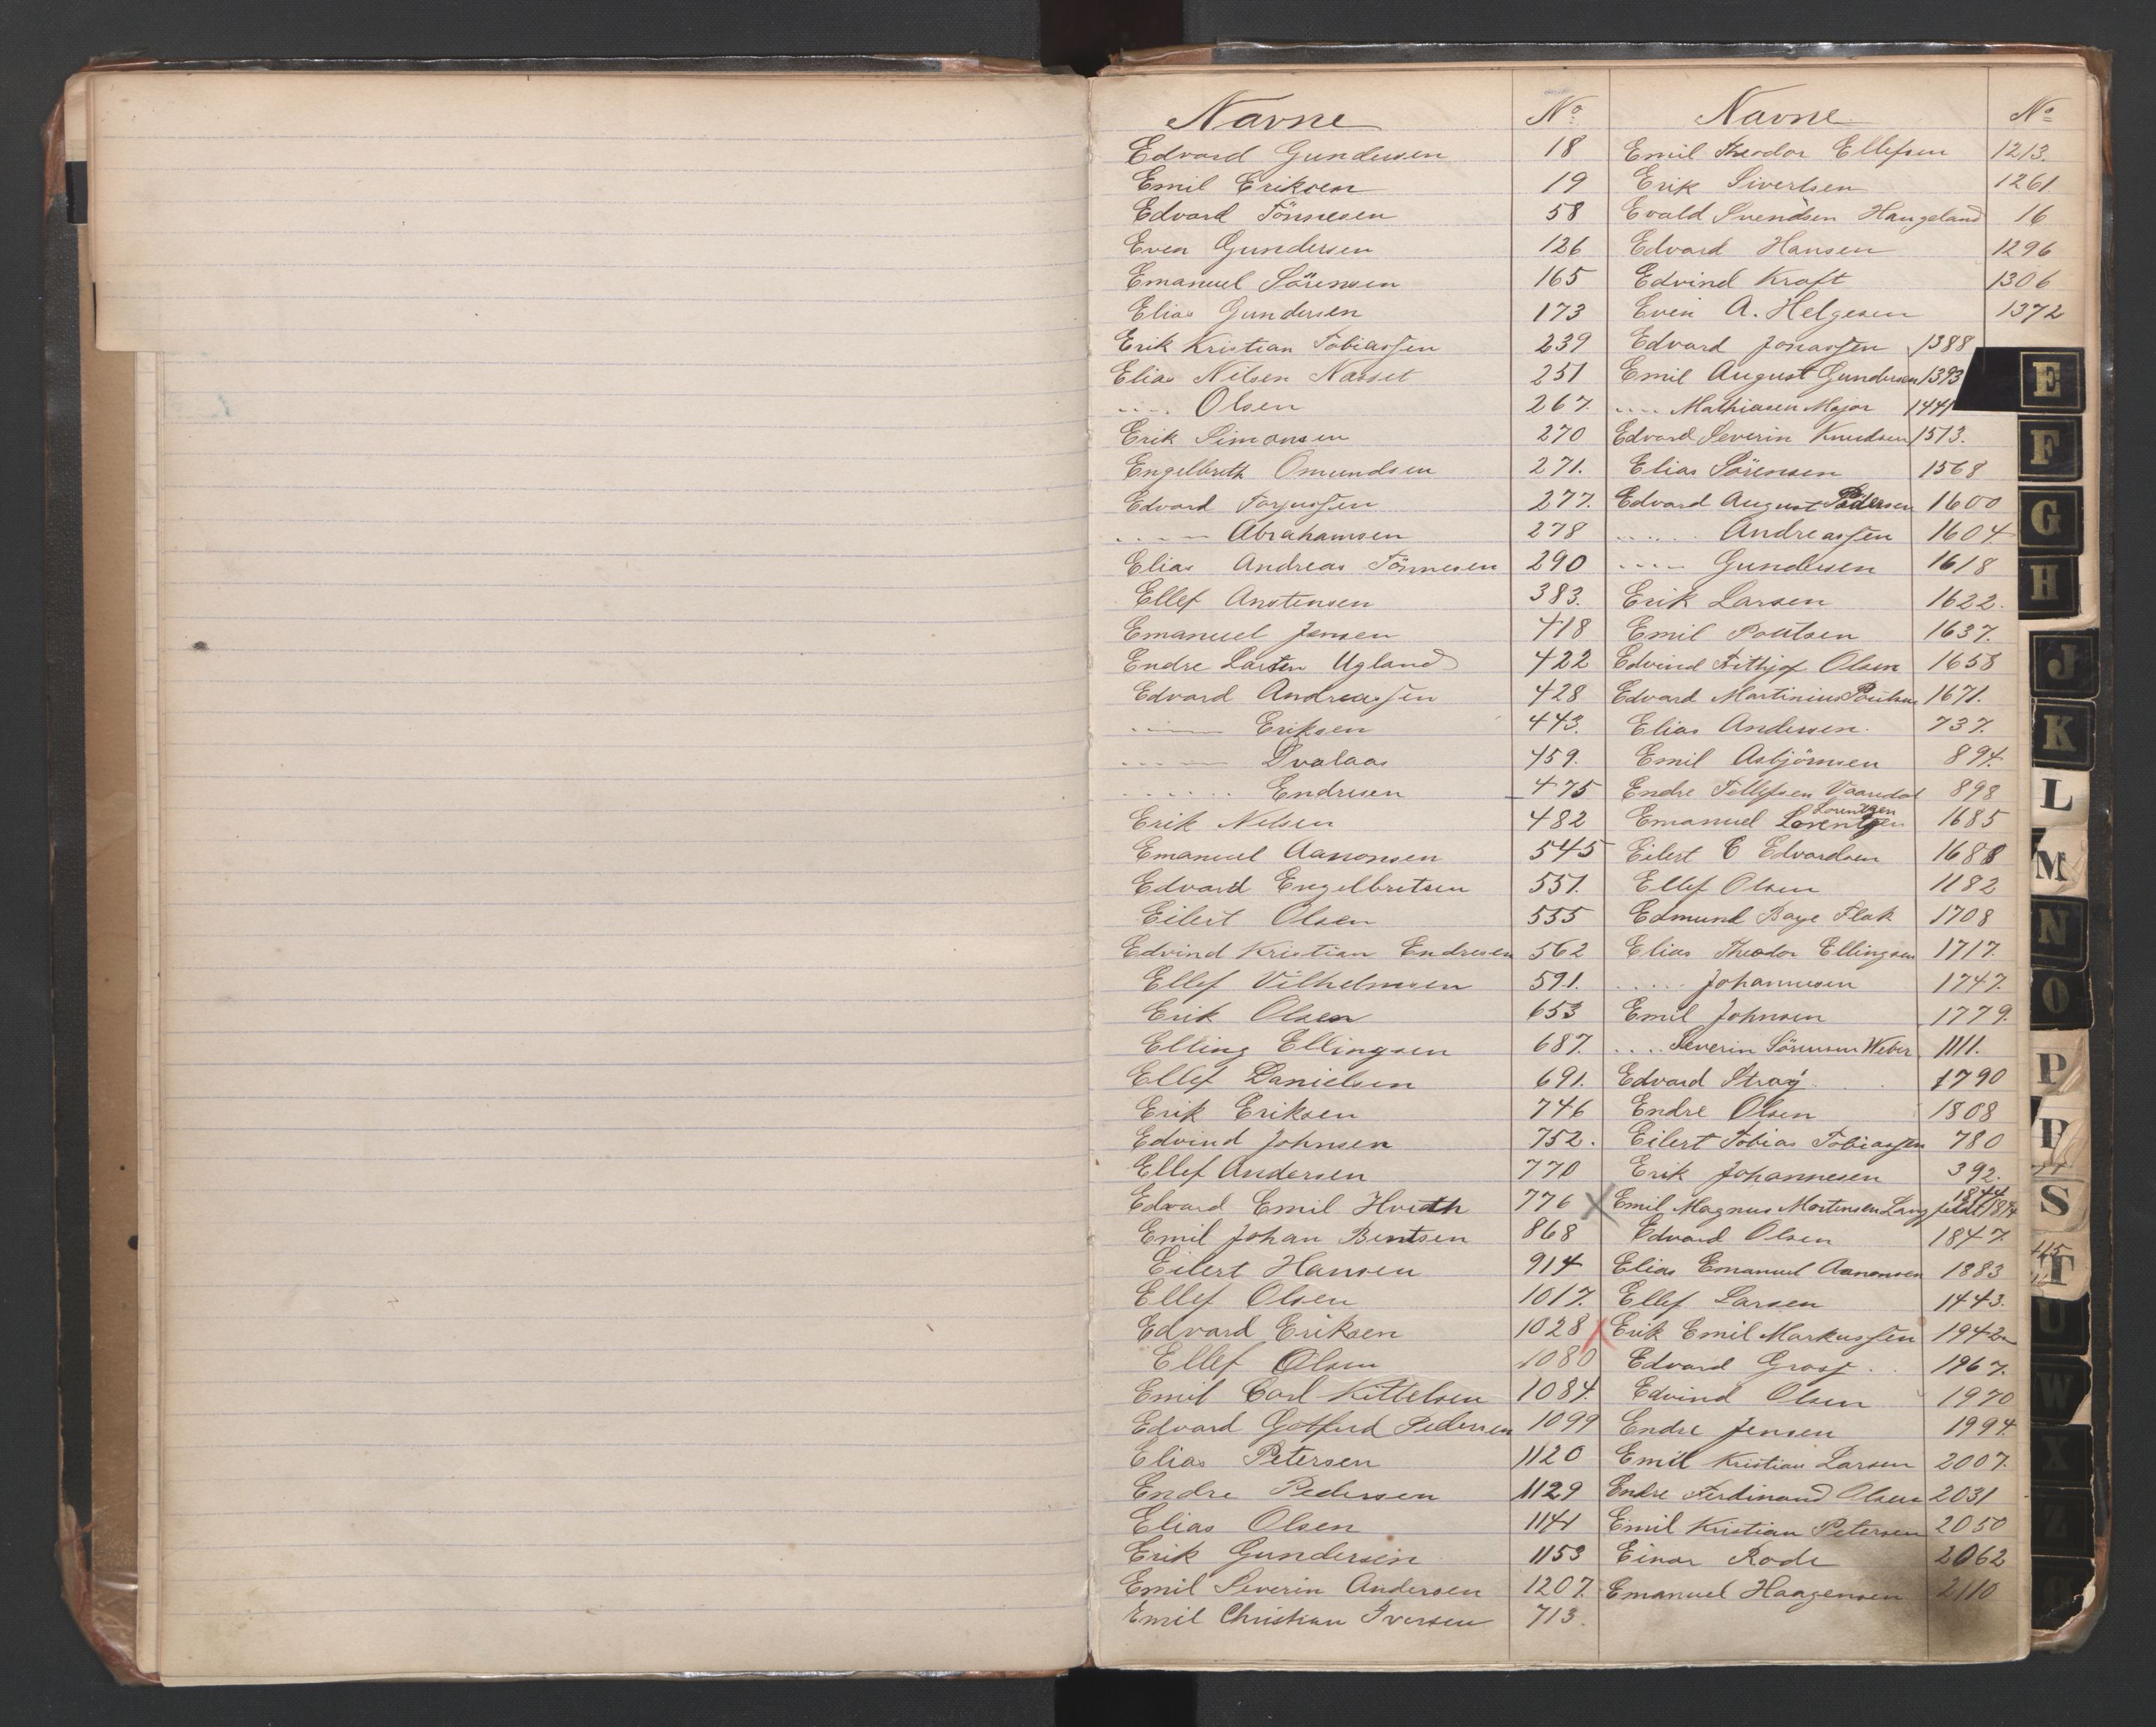 Navne No Navne No
Edvard Gundersen 18 Emil Theodor Ellefsen 1213.
Emil Eriksen 19 Erik Sivertsen 1261.
Edvard Tönnesen 58 Evald Svendsen Haugeland 16
Even Gundersen 126 Edvard Hansen 1296
Emanuel Sörensen 165 Edvind Kraft 1306
Elias Gundersen 173 Even A. Helgesen 1372
Erik Kristian Tobiassen 239 Edvard Jonassen 1388
Elias Nilsen Naset 251 Emil August Gundersen 1393
..... Olsen 267. ..... Mathiasen Major 1441
Erik Simonsen 270 Edvard Severin Knudsen 1513.
Engelbreth Omundsen 271. Elias Sörensen 1568
Edvard Torjussen 277. Edvard August Pedersen 1600
..... Abrahamsen 278 ..... Andreassen 1604
Elias Andreas Tönnesen 290 ..... Gundersen 1618
Ellef Anstensen 383. Erik Larsen 1622.
Emanuel Jensen 418 Emil Poulsen 1637.
Endre Larsen Ugland 422 Edvind Frithjof Olsen 1658
Edvard Andreassen 428 Edvard Martinius Poulsen 1671.
..... Eriksen 443. Elias Andersen. 737.
..... Dvalaas 459. Emil Asbjörnsen 894.
..... Endresen 475 Endre Tellefsen Vaaredal 898
Erik Nelsen 482 Emanuel Lorentzen Lorentzen 1685
Emanuel Aanonsen 545 Eilert C Edvardsen 1688
Edvard Engelbretsen 551. Ellef Olsen 1182
Eilert Olsen 555 Edmund Baye Flak 1708
Edvind Kristian Endresen 562 Elias Theodor Ellingsen 1717.
Ellef Vilhelmsen 591. ..... Johannesen 1747.
Erik Olsen 653 Emil Johnsen 1779.
Elling Ellingsen 687. .... Severin Sörensen Weber 1111.
Ellef Danielsen 691. Edvard Stray 1790
Erik Eriksen 746 Endre Olsen 1808
Edvind Johnsen 752. Eilert Tobias Tobiassen 780
Ellef Andersen 770 Erik Johannesen 392.
Edvard Emil Hvidth 776 X Emil Magnus Mortensen Langfeldt 1844
Emil Johan Bentsen 868 Edvard Olsen 1847.
Eilert Hansen 914 Elias Emanuel Aanonsen 1883
Ellef Olsen 1017. Ellef Larsen 1443.
Edvard Eriksen 1028 Erik Emil Markussen 1942
Ellef Olsen 1080 Edvard Grass 1967.
Emil Carl Kittelsen 1084. Edvind Olsen 1970
Edvard Gotfred Pedersen 1099 Endre Jensen 1994.
Elias Petersen 1120 Emil Kristian Larsen 2007.
Endre Pedersen 1129 Endre Ferdinand Olsen 2031
Elias Olsen 1141 Emil Kristian Petersen 2050
Erik Gundersen 1153 Einar Rode 2062
Emil Severin Andersen 1207. Emanuel Haagensen 2110
Emil Christian Iversen 713.
E
F
G
H
J
K
L
M
N
O
P
S
T
U
W
X
Z